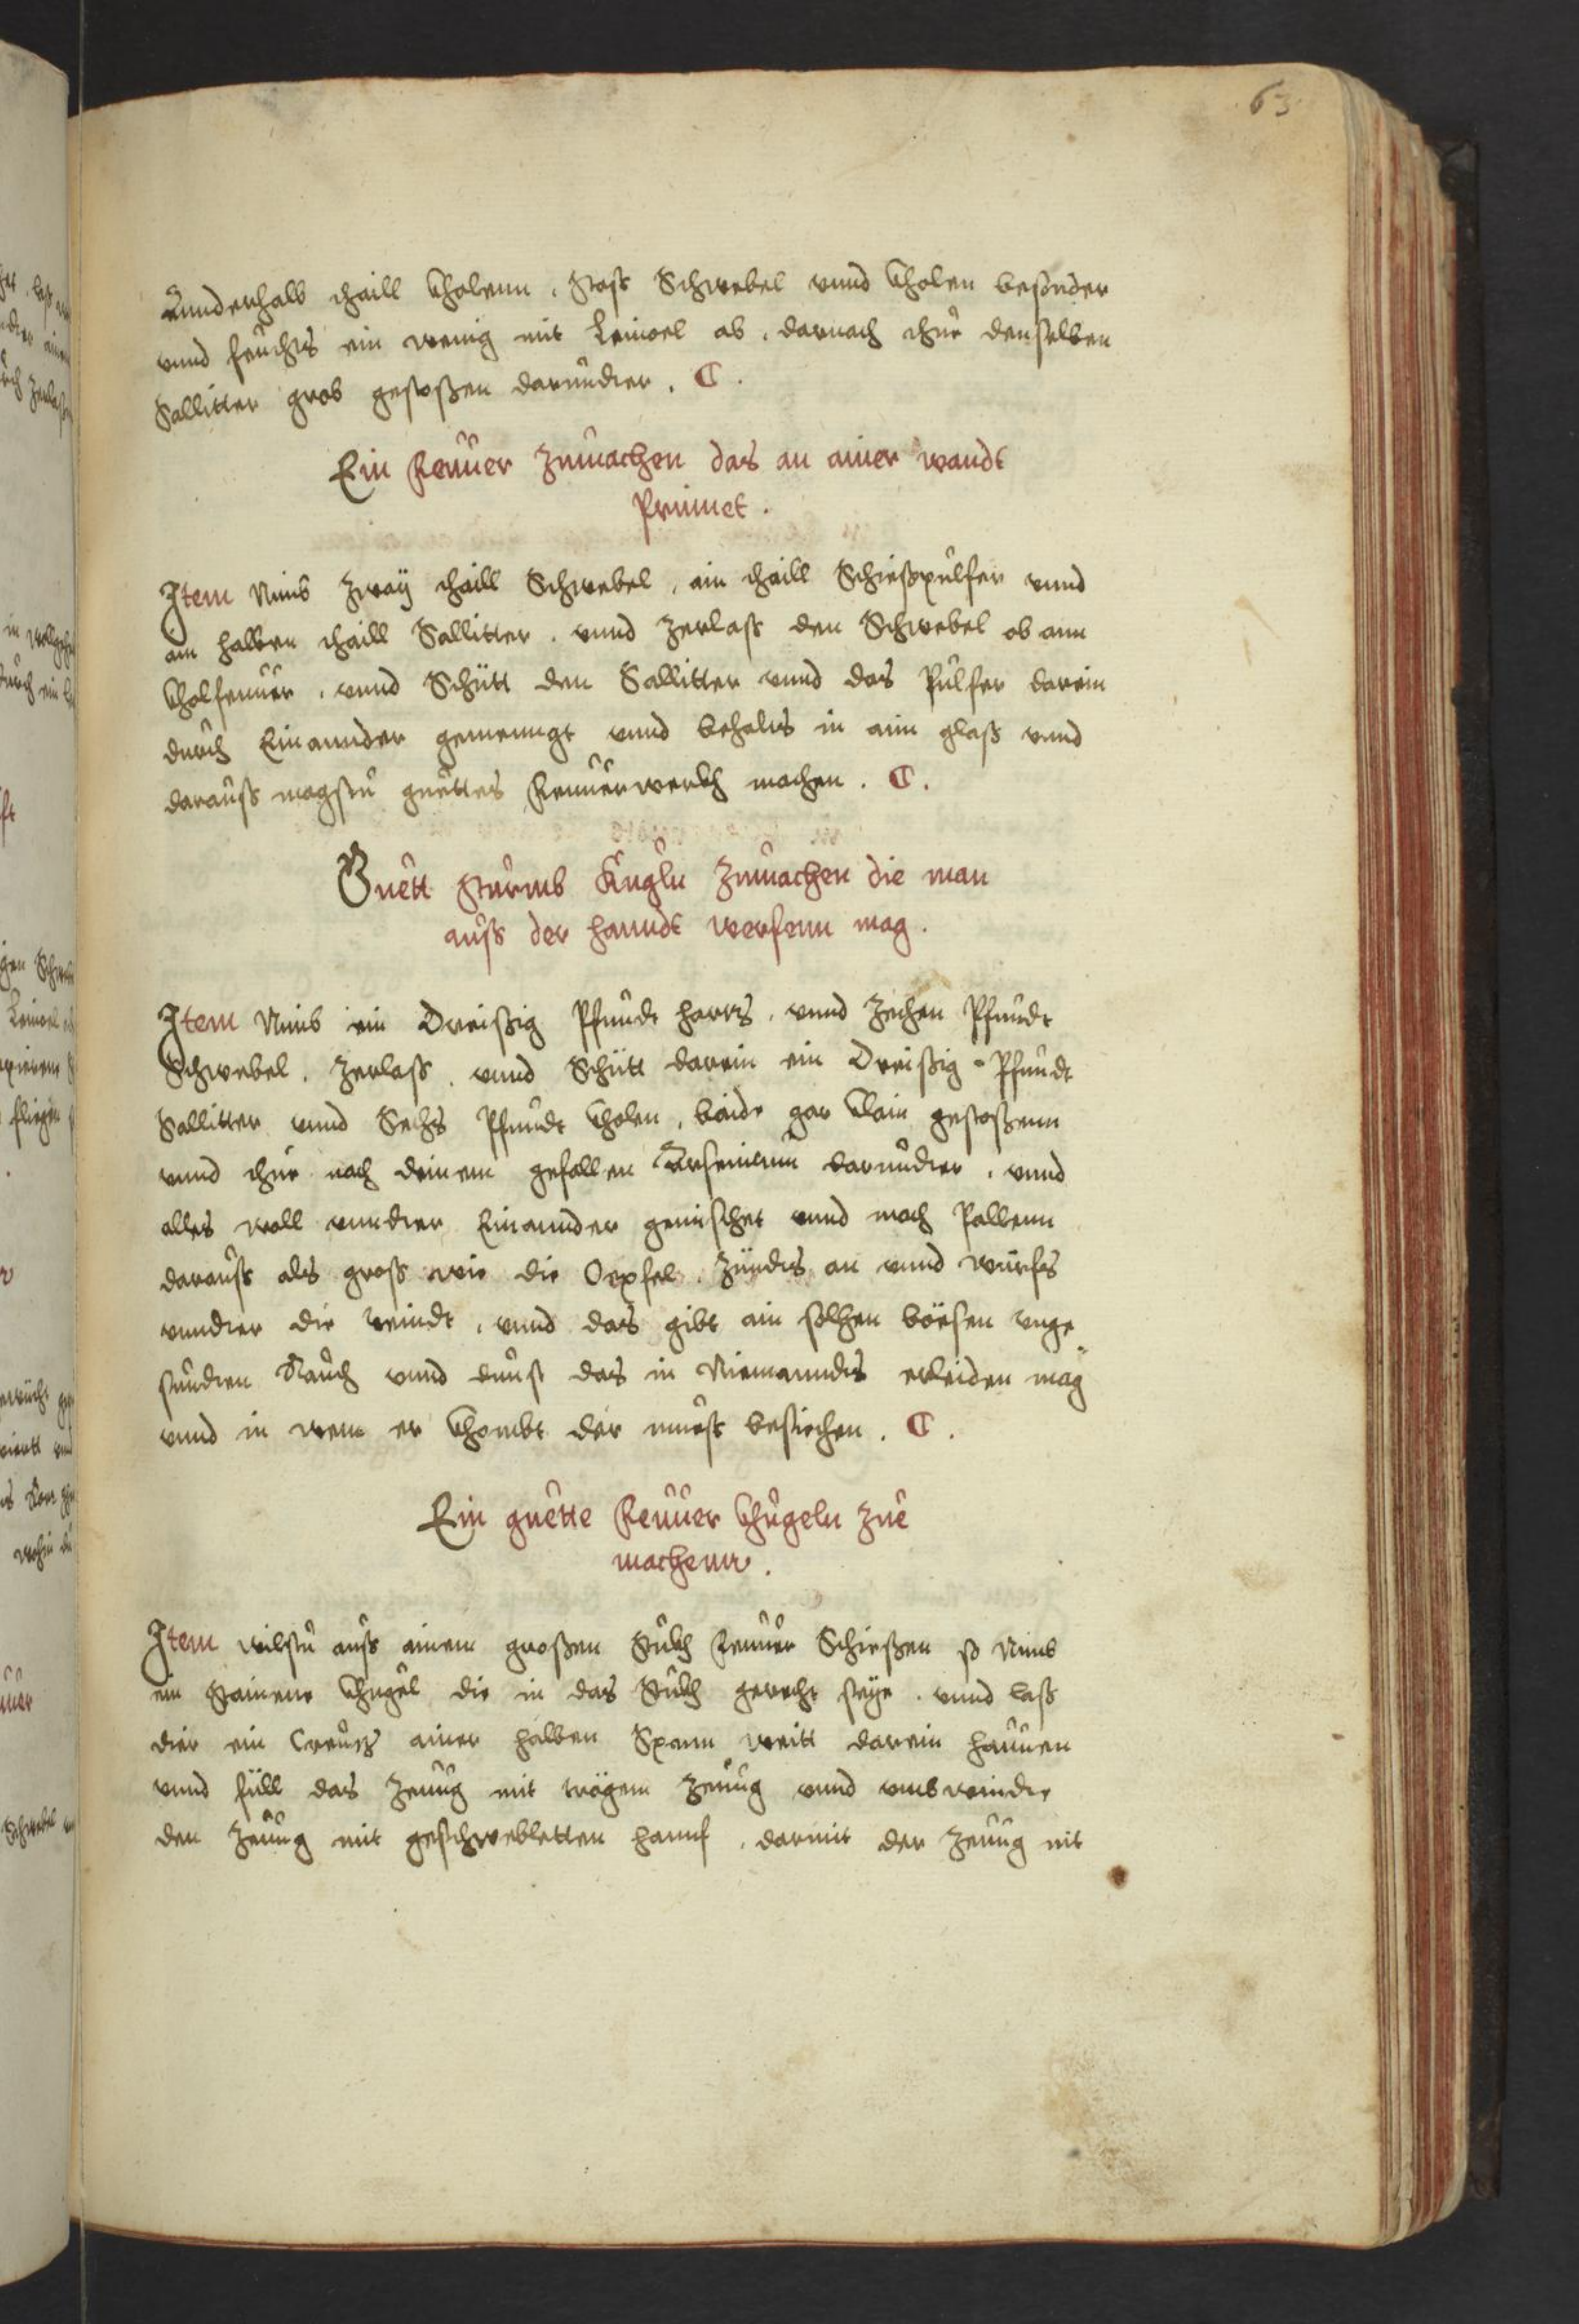 63
Annderhalb thaill Kholenn, Stoß Schwebel vnnd Kholen besonder
vnnd feuchts ein wenig mit Leinoel ab, darnach thue denselben
Sallitter grob gestoßen darundter.
Ein Feuuer zumachen das an ainer wandt
Prinnet.
Item Nimb zwaÿ thaill Schwebel, ain thaill Schießpulfer vnnd
ain halben thaill Sallitter, vnnd zerlaß den Schwebel ob ann
Kholfeuuer, vnnd Schütt den Sallitter vnnd das Pulfer darein
durch Einannder gemenngt vnnd behalts in ainn glaß vnnd
darauß magstu guettes Feuuerwerkh machen.
Guett Sturmb Kugln zumachen die man
auß der hanndt werfenn mag.
Item Nimb ein Dreißig Pfundt hartz, vnnd zechen Pfundt
Schwebel, zerlaß, vnnd Schütt darein ein Dreißig Pfundt
Sallitter vnnd Sechs Pfundt Kholen, baide gar Klain gestoßenn
vnnd thue nach deinem gefallen Arsenicum darundter, vnnd
alles woll vnndter Einannder gemischet vnnd mach Pallenn
darauß als groß wie die Oepfel, zündts an vnnd würfs
vnndter die veindt, vnnd das gibt ain solhen böesen vnge-
sundten Rauch vnnd dunst das in Niemanndts erleiden mag
vnnd in wem er Khombt der mueß besiechen.
Ein guette Feuuer Khugeln zue
machenn.
Item wilstu auß ainem großen Stukh Feuuer Schießen so Nimb
ein Stainene Khugel die in das Stukh gerecht seye, vnnd laß
dier ein Creutz ainer halben Spann weitt darein hauuen
vnnd füll das Zeuug mit trägem Zeuug vnnd vmbwindte
den Zeuug mit geschwebletten hannf, darmit der Zeuug nit